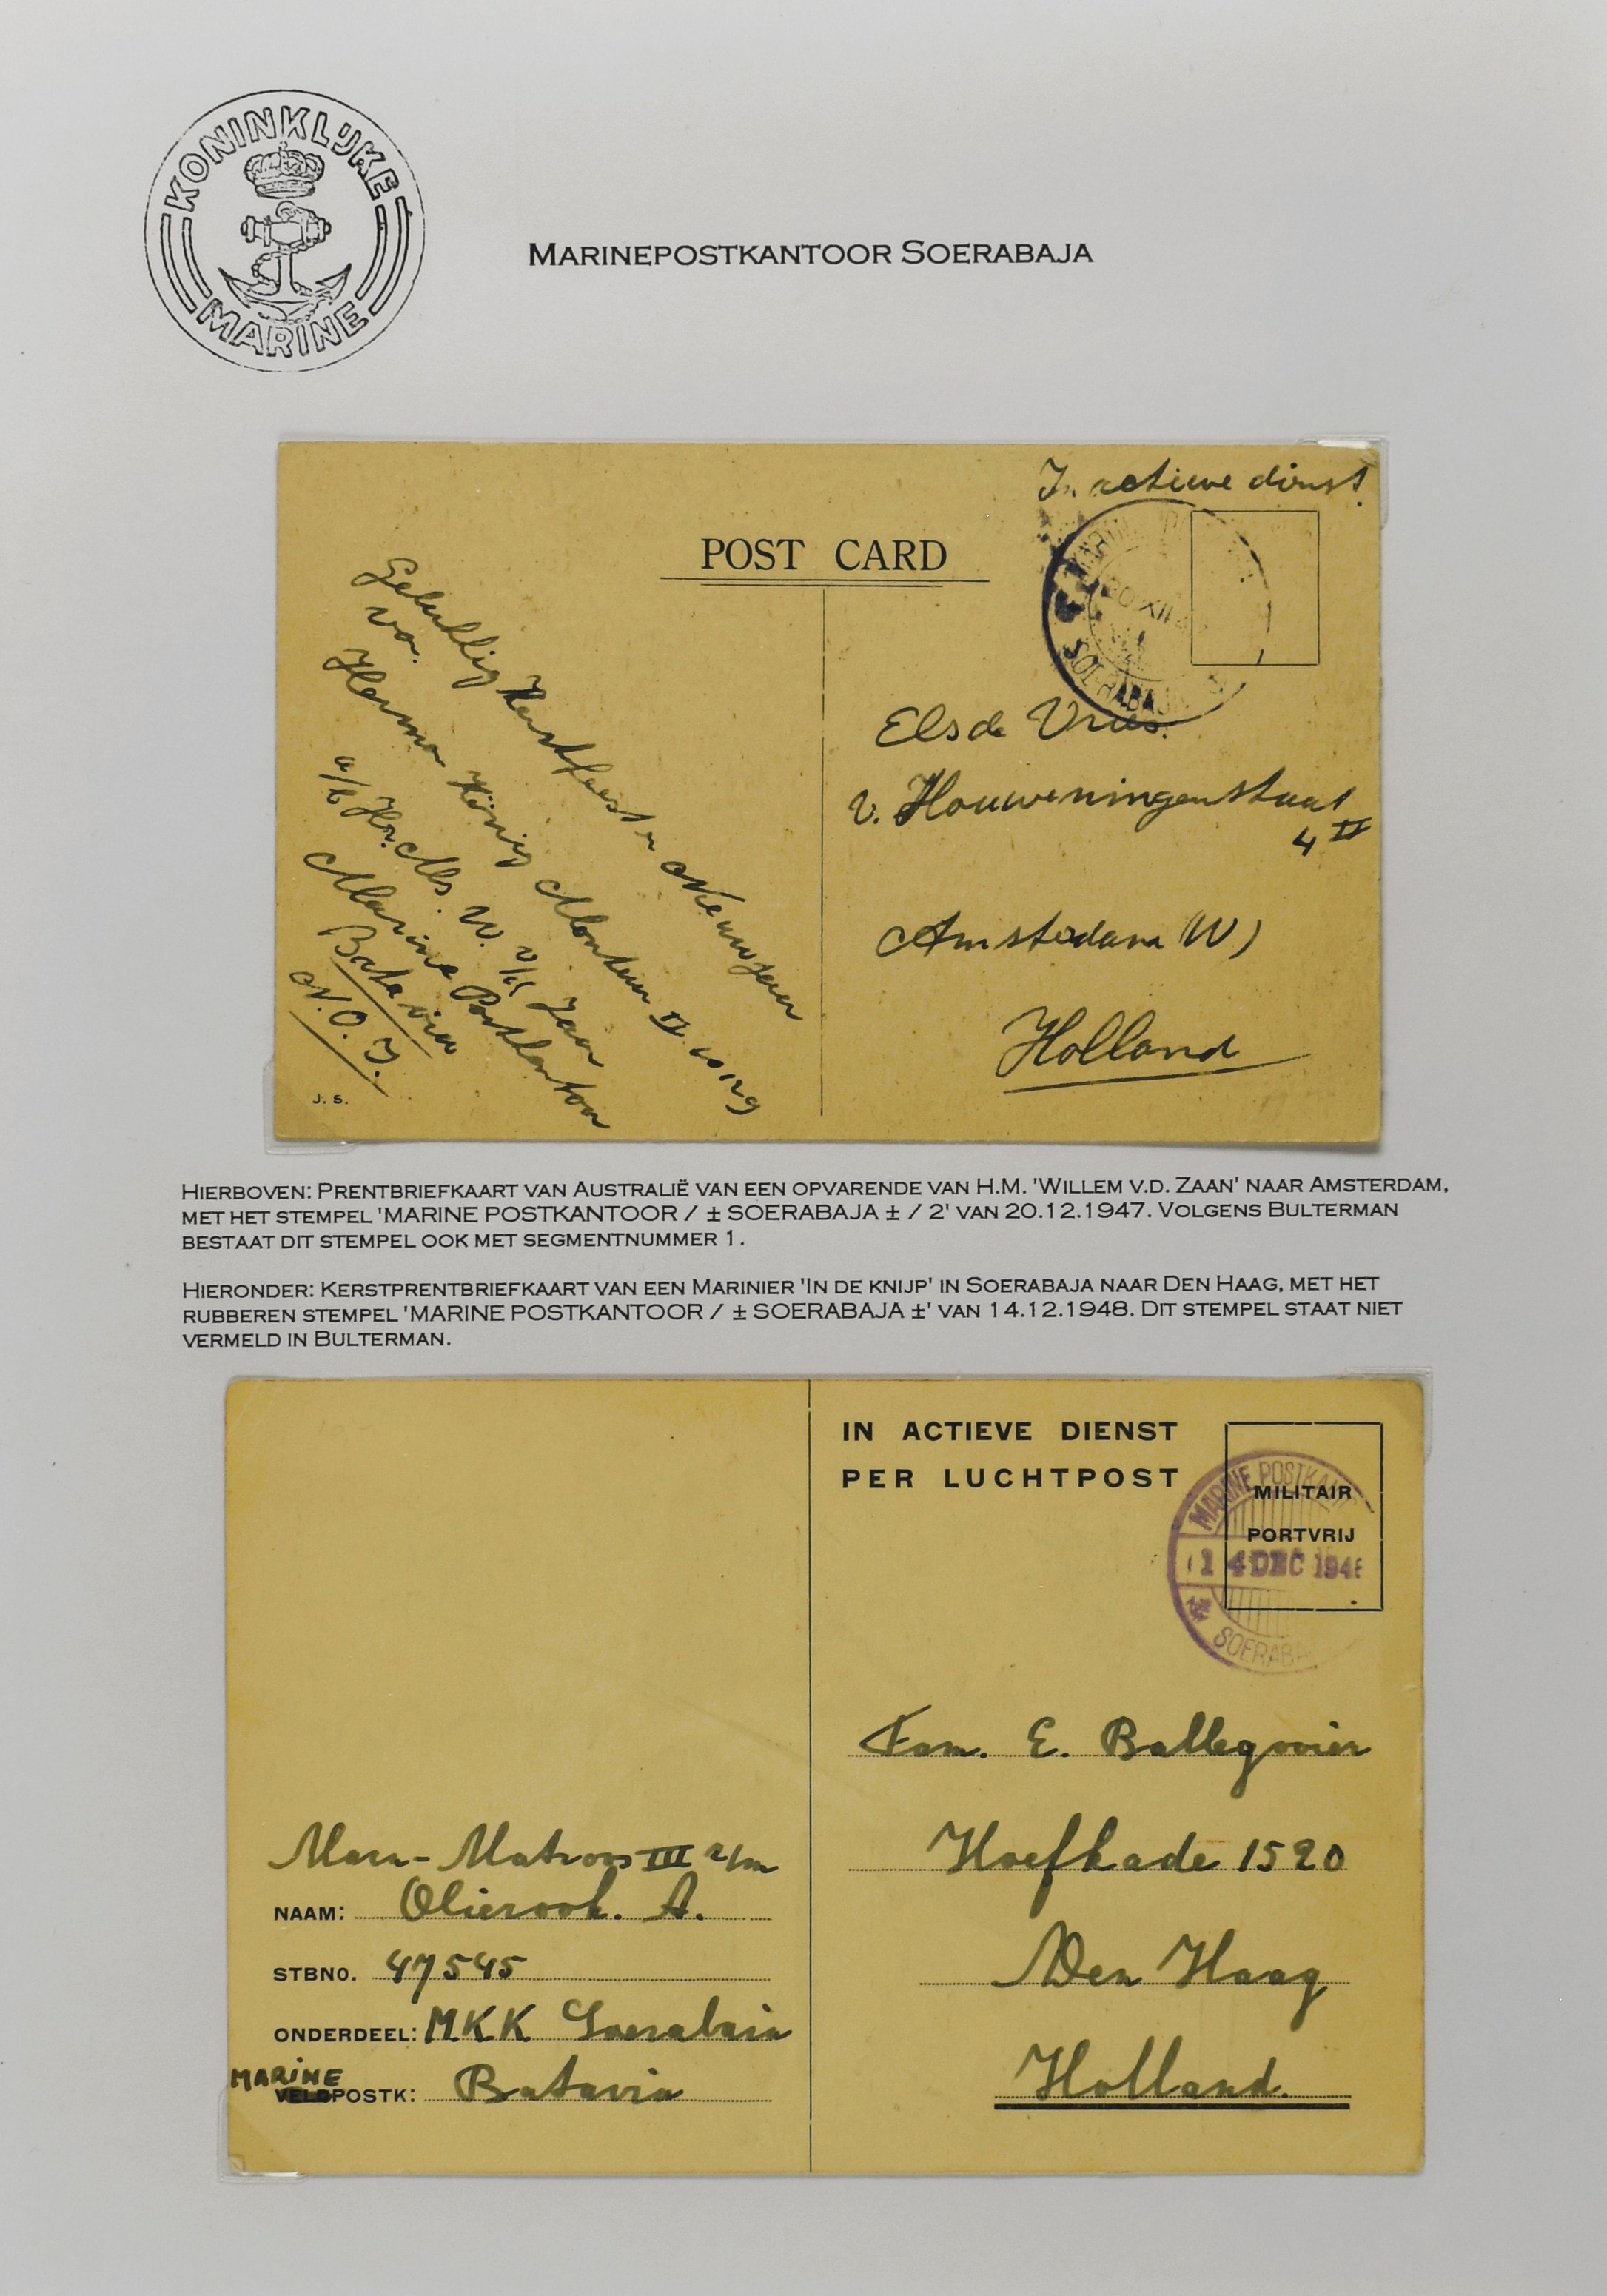 KONINKLIJKE
MARINE
MARINEPOSTKANTOOR SOERABAJA
In actieve dienst.
POST CARD
SOERABAJA
20 XII
Gelukkig Kerstfeest en Nieuwjaar
van.
Herman König Monteur II
a/b Hr. Ms. W. v/d Zaan
Marine Postkantoor
Batavia
N.O.I.
J. S.
Els de Vries.
v. Houweningenstraat
4 II
Amsterdam (W)
Holland
HIERBOVEN: PRENTBRIEFKAART VAN AUSTRALIË VAN EEN OPVARENDE VAN H.M. 'WILLEM V.D. ZAAN' NAAR AMSTERDAM,
MET HET STEMPEL 'MARINE POSTKANTOOR / ± SOERABAJA ± / 2' VAN 20.12.1947. VOLGENS BULTERMAN
BESTAAT DIT STEMPEL OOK MET SEGMENTNUMMER 1.
HIERONDER: KERSTPRENTBRIEFKAART VAN EEN MARINIER 'IN DE KNIJP' IN SOERABAJA NAAR DEN HAAG, MET HET
RUBBEREN STEMPEL 'MARINE POSTKANTOOR / ± SOERABAJA ±' VAN 14.12.1948. DIT STEMPEL STAAT NIET
VERMELD IN BULTERMAN.
IN ACTIEVE DIENST
PER LUCHTPOST
MILITAIR
PORTVRIJ
MARINE POSTKAN
14 DEC 194
SOERABA
Fam. E. Ballegooien
Hoefkade 1520
Den Haag
Holland.
Marn-Matroos III z/m
NAAM: Olierook. A.
STBNO. 47545
ONDERDEEL: MKK Soerabaia
MARINE
VELDPOSTK: Batavia